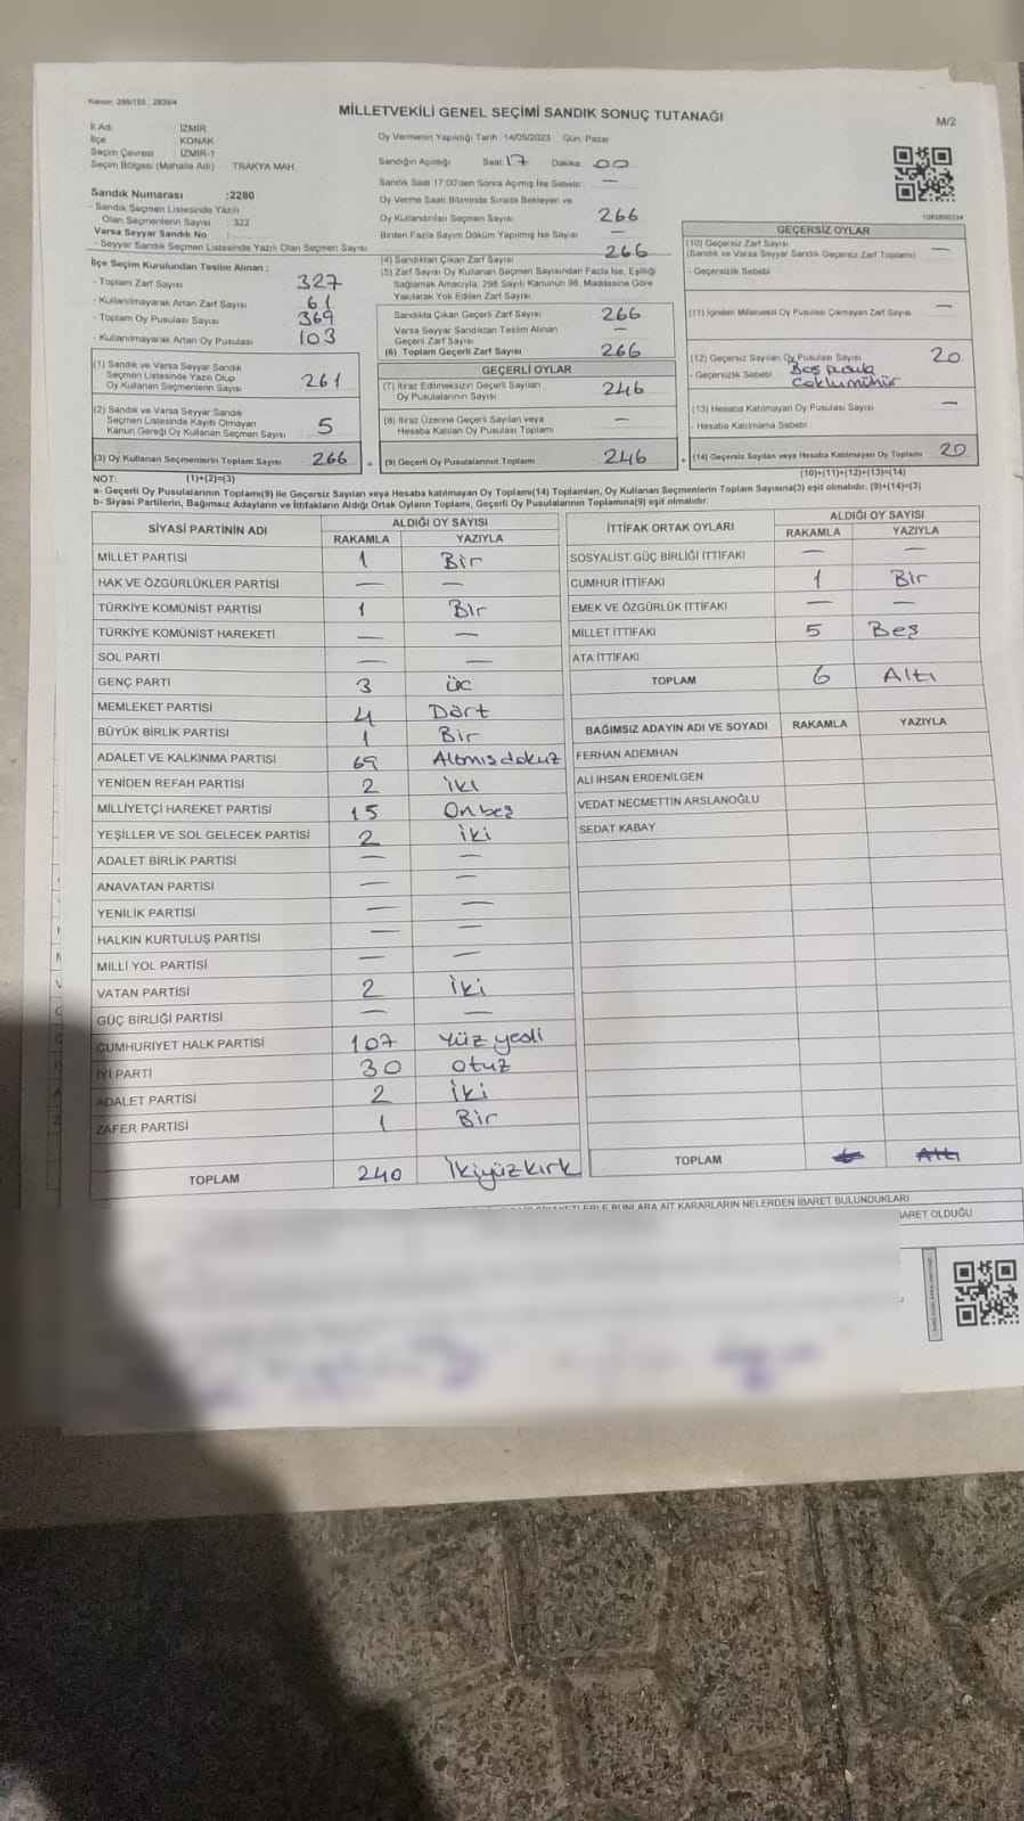 MİLLETVEKİLİ GENEL SEÇİMİ SANDIK SONUÇ TUTANAĞI
M/2
İl Adı : İZMİR
İlçe : KONAK
Seçim Çevresi : İZMİR-1
Seçim Bölgesi (Mahalle Adı) : TRAKYA MAH.
Sandık Numarası :2280
- Sandık Seçmen Listesinde Yazılı
Olan Seçmenlerin Sayısı : 322
Varsa Seyyar Sandık No :
- Seyyar Sandık Seçmen Listesinde Yazılı Olan Seçmen Sayısı
İlçe Seçim Kurulundan Teslim Alınan :
- Toplam Zarf Sayısı 327
- Kullanılmayarak Artan Zarf Sayısı 61
- Toplam Oy Pusulası Sayısı 369
- Kullanılmayarak Artan Oy Pusulası 103
(1) Sandık ve Varsa Seyyar Sandık
Seçmen Listesinde Yazılı Olup
Oy Kullanan Seçmenlerin Sayısı 261
(2) Sandık ve Varsa Seyyar Sandık
Seçmen Listesinde Kayıtlı Olmayan
Kanun Gereği Oy Kullanan Seçmen Sayısı 5
(3) Oy Kullanan Seçmenlerin Toplam Sayısı 266
Oy Vermenin Yapıldığı Tarih :14/05/2023 Gün: Pazar
Sandığın Açıldığı Saat: 17 Dakika: 00
Sandık Saat 17:00'den Sonra Açılmış İse Sebebi: —
Oy Verme Saati Bitiminde Sırada Bekleyen ve
Oy Kullandırılan Seçmen Sayısı 266
Birden Fazla Sayım Döküm Yapılmış İse Sayısı —
(4) Sandıktan Çıkan Zarf Sayısı 266
(5) Zarf Sayısı Oy Kullanan Seçmen Sayısından Fazla İse, Eşitliği
Sağlamak Amacıyla, 298 Sayılı Kanunun 98. Maddesine Göre
Yakılarak Yok Edilen Zarf Sayısı
Sandıkta Çıkan Geçerli Zarf Sayısı 266
Varsa Seyyar Sandıktan Teslim Alınan
Geçerli Zarf Sayısı —
(6) Toplam Geçerli Zarf Sayısı 266
GEÇERLİ OYLAR
(7) İtiraz Edilmeksizin Geçerli Sayılan
Oy Pusulalarının Sayısı 246
(8) İtiraz Üzerine Geçerli Sayılan veya
Hesaba Katılan Oy Pusulası Toplamı —
(9) Geçerli Oy Pusulalarının Toplamı 246
GEÇERSİZ OYLAR
(10) Geçersiz Zarf Sayısı —
(Sandık ve Varsa Seyyar Sandık Geçersiz Zarf Toplamı)
- Geçersizlik Sebebi
(11) İçinden Milletvekili Oy Pusulası Çıkmayan Zarf Sayısı —
(12) Geçersiz Sayılan Oy Pusulası Sayısı 20
- Geçersizlik Sebebi Boş pusula
Çoklu mühür
(13) Hesaba Katılmayan Oy Pusulası Sayısı —
- Hesaba Katılmama Sebebi
(14) Geçersiz Sayılan veya Hesaba Katılmayan Oy Toplamı 20
NOT: (1)+(2)=(3) (10)+(11)+(12)+(13)=(14)
a- Geçerli Oy Pusulalarının Toplamı(9) ile Geçersiz Sayılan veya Hesaba katılmayan Oy Toplamı(14) Toplamları, Oy Kullanan Seçmenlerin Toplam Sayısına(3) eşit olmalıdır. (9)+(14)=(3)
b- Siyasi Partilerin, Bağımsız Adayların ve İttifakların Aldığı Ortak Oyların Toplamı, Geçerli Oy Pusulalarının Toplamına(9) eşit olmalıdır.
SİYASİ PARTİNİN ADI ALDIĞI OY SAYISI
RAKAMLA YAZIYLA
MİLLET PARTİSİ 1 Bir
HAK VE ÖZGÜRLÜKLER PARTİSİ — —
TÜRKİYE KOMÜNİST PARTİSİ 1 Bir
TÜRKİYE KOMÜNİST HAREKETİ — —
SOL PARTİ — —
GENÇ PARTİ 3 üç
MEMLEKET PARTİSİ 4 Dört
BÜYÜK BİRLİK PARTİSİ 1 Bir
ADALET VE KALKINMA PARTİSİ 69 Altmış dokuz
YENİDEN REFAH PARTİSİ 2 iki
MİLLİYETÇİ HAREKET PARTİSİ 15 Onbeş
YEŞİLLER VE SOL GELECEK PARTİSİ 2 iki
ADALET BİRLİK PARTİSİ — —
ANAVATAN PARTİSİ — —
YENİLİK PARTİSİ — —
HALKIN KURTULUŞ PARTİSİ — —
MİLLİ YOL PARTİSİ — —
VATAN PARTİSİ 2 İki
GÜÇ BİRLİĞİ PARTİSİ — —
CUMHURİYET HALK PARTİSİ 107 Yüz yedi
İYİ PARTİ 30 Otuz
ADALET PARTİSİ 2 İki
ZAFER PARTİSİ 1 Bir
TOPLAM 240 İkiyüzkırk
İTTİFAK ORTAK OYLARI ALDIĞI OY SAYISI
RAKAMLA YAZIYLA
SOSYALİST GÜÇ BİRLİĞİ İTTİFAKI — —
CUMHUR İTTİFAKI 1 Bir
EMEK VE ÖZGÜRLÜK İTTİFAKI — —
MİLLET İTTİFAKI 5 Beş
ATA İTTİFAKI
TOPLAM 6 Altı
BAĞIMSIZ ADAYIN ADI VE SOYADI RAKAMLA YAZIYLA
FERHAN ADEMHAN
ALİ İHSAN ERDENİLGEN
VEDAT NECMETTİN ARSLANOĞLU
SEDAT KABAY
TOPLAM
BUNLARA AİT KARARLARIN NELERDEN İBARET BULUNDUKLARI
OLDUĞU